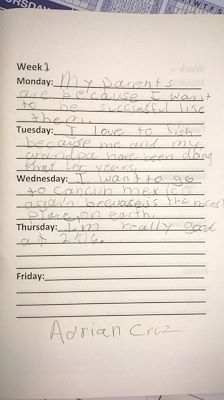 RSDAY
W T F S
Week 1
Monday: My parents
are because I want
to be successful like
them.
Tuesday: I love to fish
because me and my
grandpa have been doing
that for years.
Wednesday: I want to go
to Cancun mexico
again because is the nicest
place on earth.
Thursday: I'm really good
at 2k16.
Friday:
Adrian Cruz